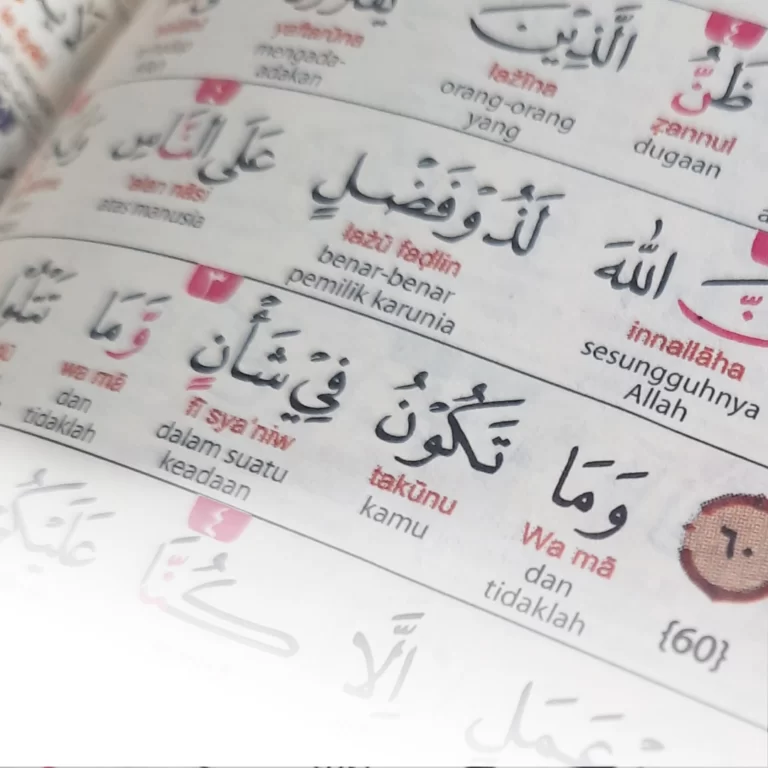 ظَنُّ الَّذِيْنَ
ẓannul lażīna yaftarūna
dugaan orang-orang yang mengada-adakan
اللّٰهَ لَذُوْ فَضْلٍ عَلَى النَّاسِ
innallāha lażū faḍlin 'alan nāsi
sesungguhnya Allah benar-benar pemilik karunia atas manusia
٦٠ وَمَا تَكُوْنُ فِيْ شَأْنٍ وَّمَا
Wa mā takūnu fī sya'niw wa mā
{60} dan tidaklah kamu dalam suatu keadaan dan tidaklah
عَمَلٍ اِلَّا كُنَّا